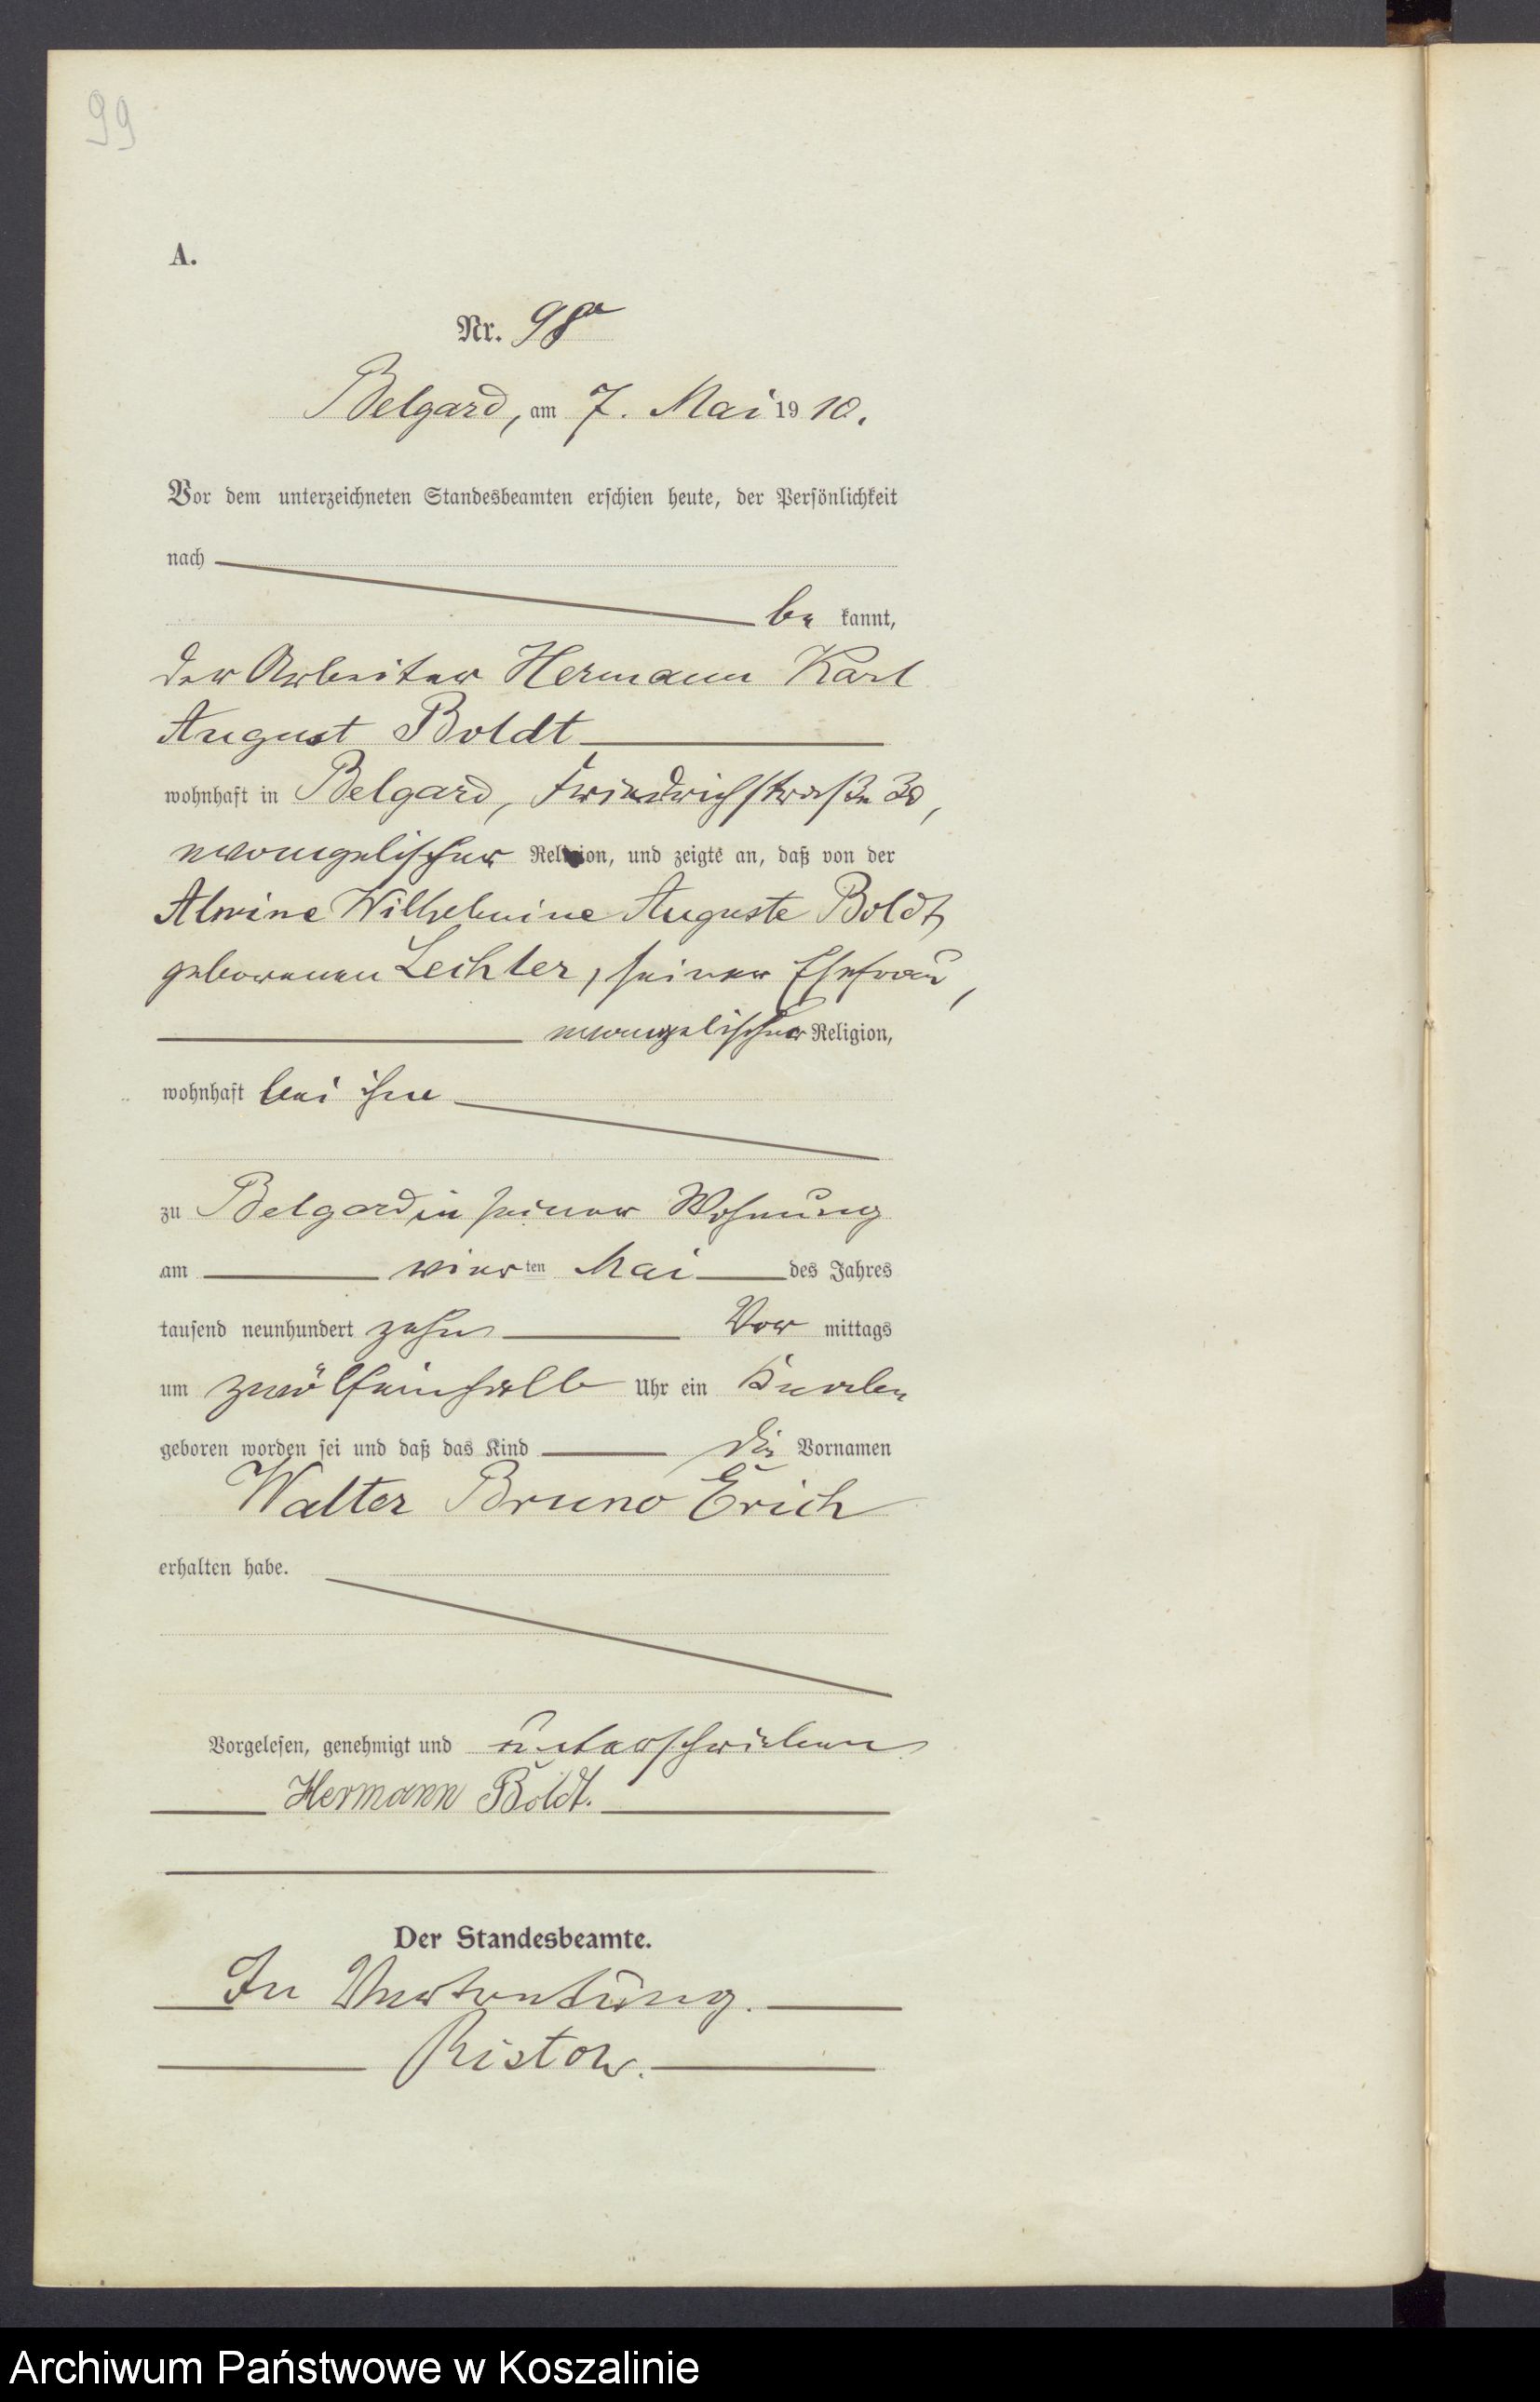 99
A.
Nr. 98
Belgard, am 7. Mai 1910.
Vor dem unterzeichneten Standesbeamten erschien heute, der Persönlichkeit
nach
be kannt,
der Arbeiter Hermann Karl
August Boldt
wohnhaft in Belgard, Friedrichstraße 30,
evangelischer Religion, und zeigte an, daß von der
Alwine Wilhelmine Auguste Boldt,
geborenen Lechler, seiner Ehefrau,
evangelischer Religion,
wohnhaft bei ihm
zu Belgard in seiner Wohnung
am vierten Mai des Jahres
tausend neunhundert zehn Vor mittags
um zwölfeinhalb Uhr ein Knabe
geboren worden sei und daß das Kind die Vornamen
Walter Bruno Erich
erhalten habe.
Vorgelesen, genehmigt und unterschrieben
Hermann Boldt.
Der Standesbeamte.
In Vertretung.
Ristow.
Archiwum Państwowe w Koszalinie